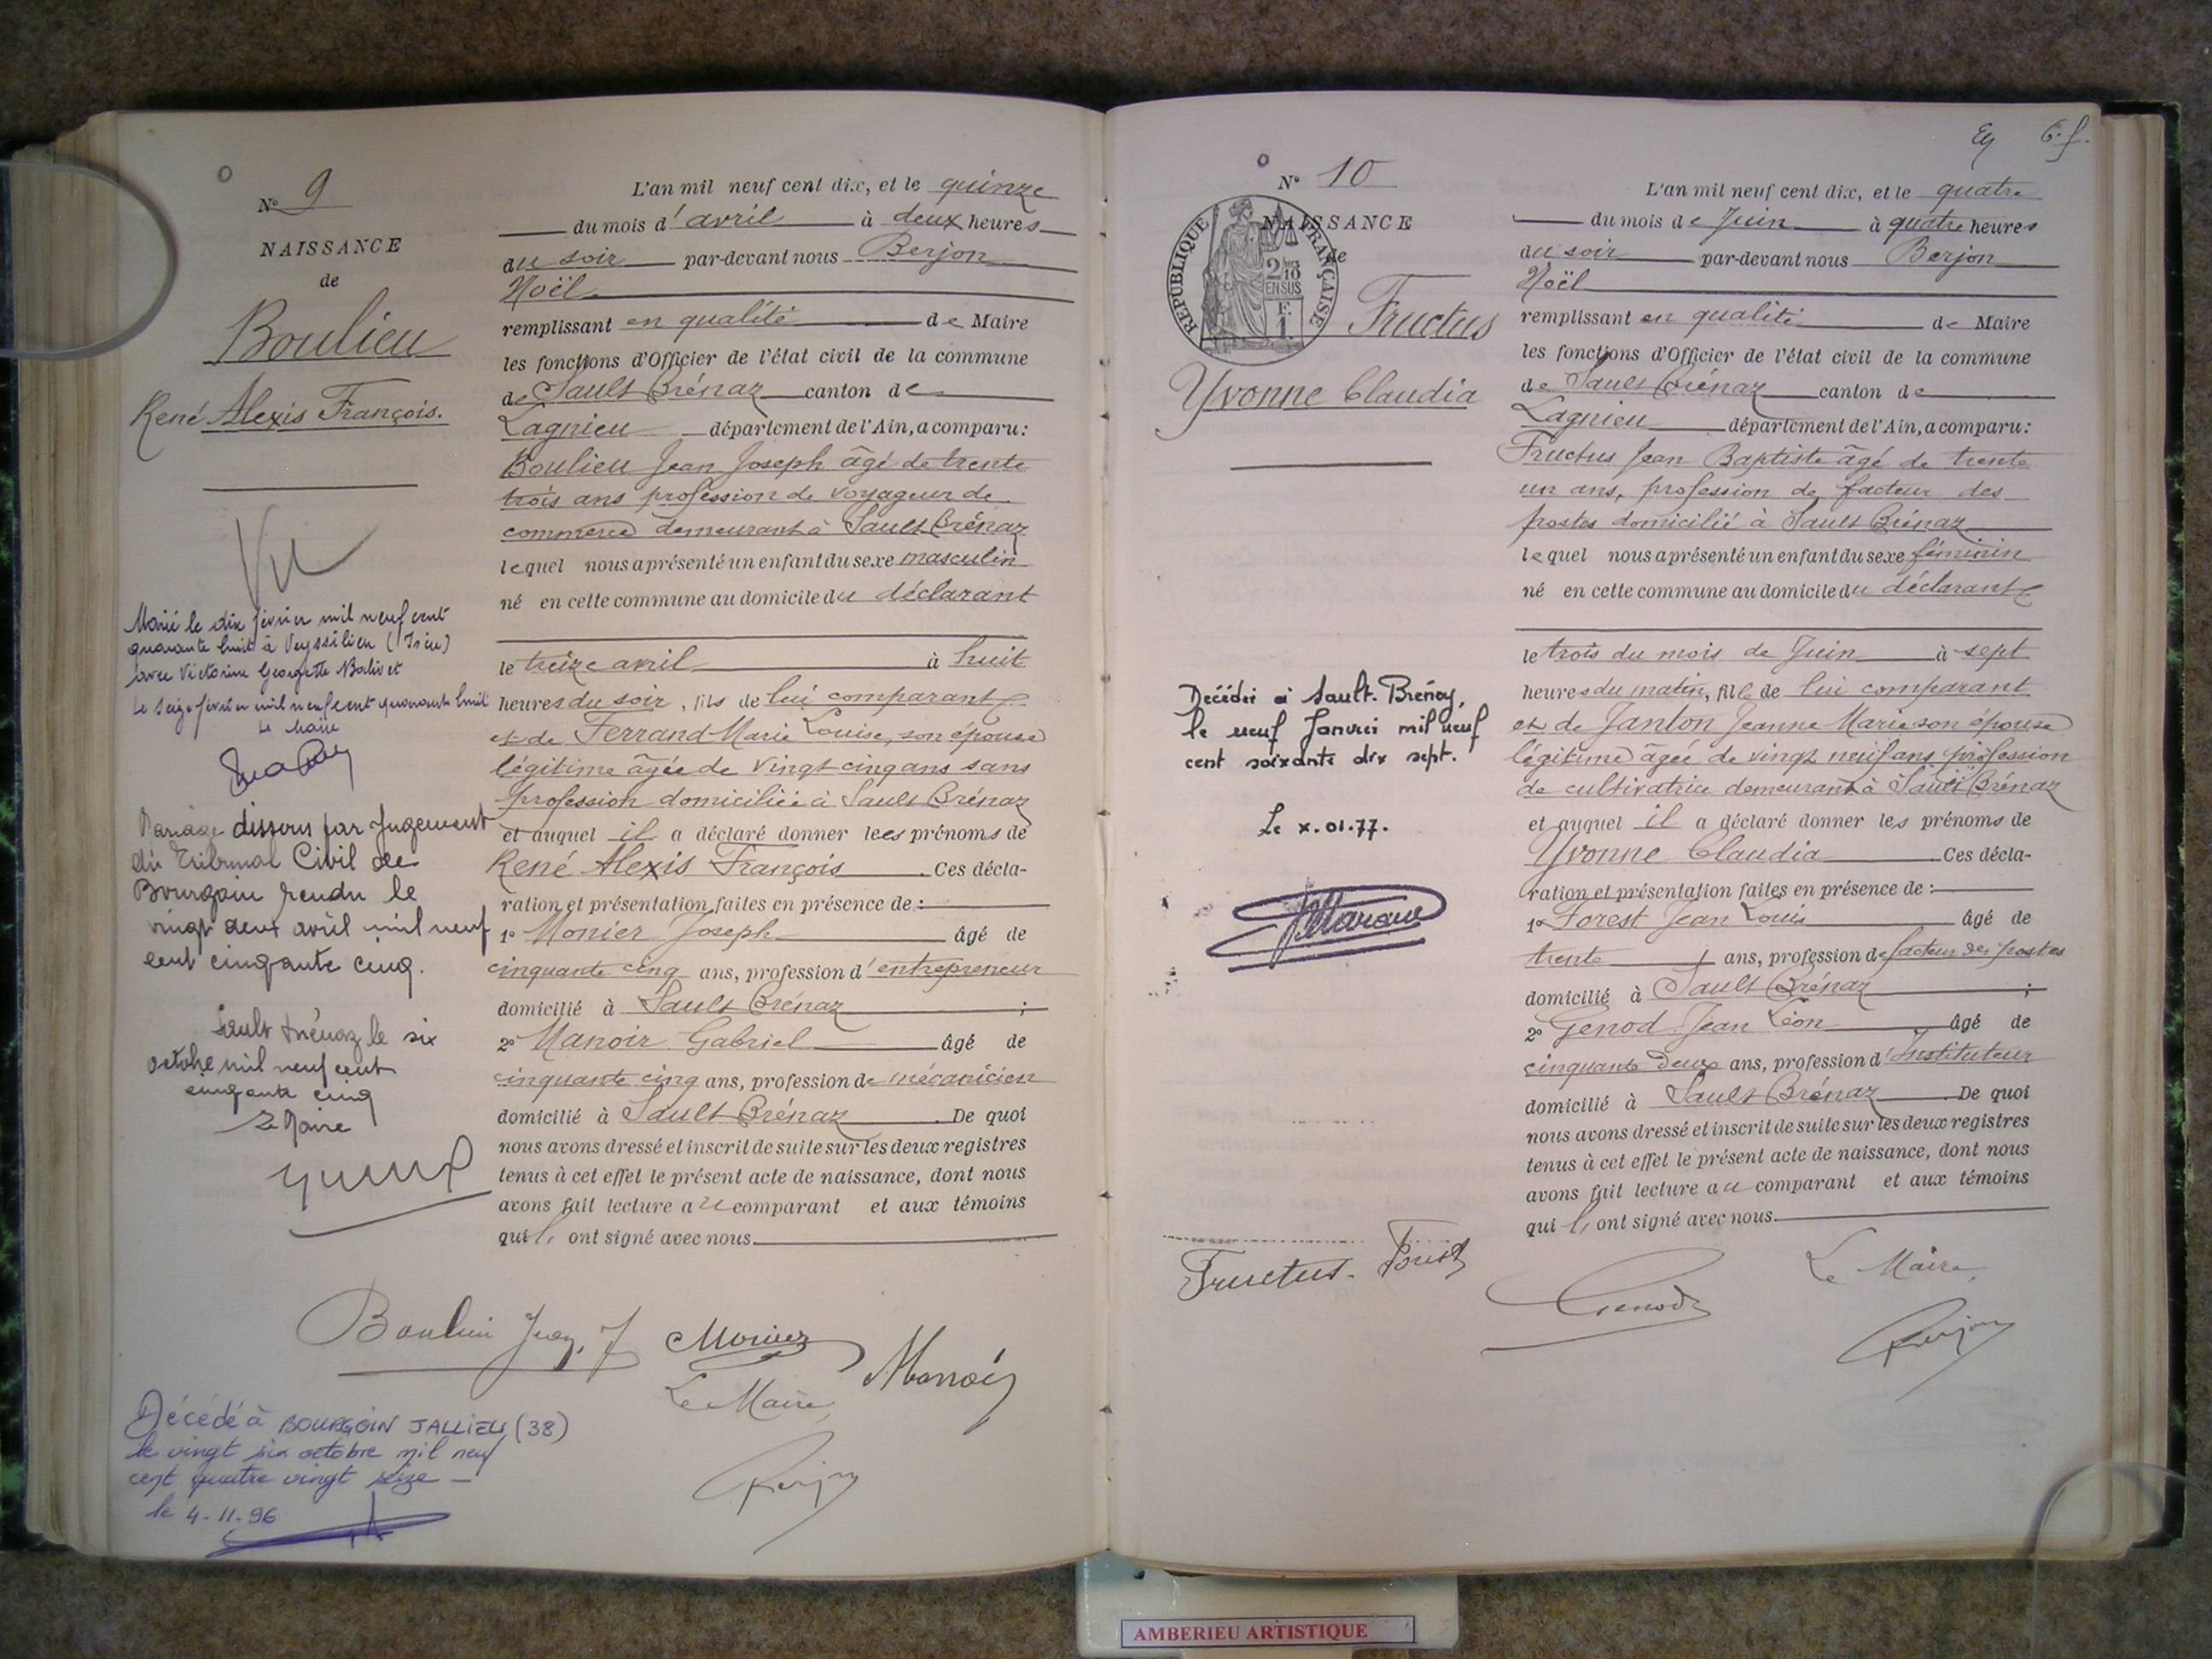 Nº 9
NAISSANCE
de
Boulieu
René Alexis François.
Vu
Marié le dix février mil neuf cent
quarante huit à Veyssilieu (Isère)
avec Victorine Georgette
Le seize février mil neuf cent quarante huit
Le Maire
Mariage dissous par Jugement
du Tribunal Civil de
Bourgoin rendu le
vingt deux avril mil neuf
cent cinquante cinq.
Sault Brénaz le six
octobre mil neuf cent
cinquante cinq
Le Maire
L'an mil neuf cent dix, et le quinze
du mois d'avril à deux heures
du soir par-devant nous Berjon
Noël
remplissant en qualité de Maire
les fonctions d'Officier de l'état civil de la commune
de Sault Brénaz canton de
Lagnieu département de l'Ain, a comparu:
Boulieu Jean Joseph âgé de trente
trois ans profession de voyageur de
commerce demeurant à Sault Brénaz
lequel nous a présenté un enfant du sexe masculin
né en cette commune au domicile du déclarant
le treize avril à huit
heures du soir, fils de lui comparant
et de Ferrand Marie Louise, son épouse
légitime âgée de vingt cinq ans sans
profession domiciliée à Sault Brénaz
et auquel il a déclaré donner les prénoms de
René Alexis François Ces décla-
ration et présentation faites en présence de:
1º Monier Joseph âgé de
cinquante cinq ans, profession d'entrepreneur
domicilié à Sault Brénaz ;
2º Manoir Gabriel âgé de
cinquante cinq ans, profession de mécanicien
domicilié à Sault Brénaz. De quoi
nous avons dressé et inscrit de suite sur les deux registres
tenus à cet effet le présent acte de naissance, dont nous
avons fait lecture au comparant et aux témoins
qui ont signé avec nous
Boulieu Jean. J Monier
Manoir
Le Maire,
Berjon
Décédé à BOURGOIN JALLIEU (38)
le vingt six octobre mil neuf
cent quatre vingt seize
le 4-11-96
6. f.
Nº 10
NAISSANCE
de
RÉPUBLIQUE FRANÇAISE
Fructus
Yvonne Claudia
Décédée à Sault-Brénaz,
le neuf Janvier mil neuf
cent soixante dix sept.
Le x.01.77.
L'an mil neuf cent dix, et le quatre
du mois de Juin à quatre heures
du soir par-devant nous Berjon
Noël
remplissant en qualité de Maire
les fonctions d'Officier de l'état civil de la commune
de Sault Brénaz canton de
Lagnieu département de l'Ain, a comparu:
Fructus Jean Baptiste âgé de trente
un ans, profession de facteur des
postes domicilié à Sault Brénaz
lequel nous a présenté un enfant du sexe féminin
né en cette commune au domicile du déclarant
le trois du mois de Juin à sept
heures du matin, fille de lui comparant
et de Janton Jeanne Marie son épouse
légitime âgée de vingt neuf ans profession
de cultivatrice demeurant à Sault Brénaz
et auquel il a déclaré donner les prénoms de
Yvonne Claudia Ces décla-
ration et présentation faites en présence de:
1º Forest Jean Louis âgé de
trente ans, profession de facteur des postes
domicilié à Sault Brénaz ;
2º Genod Jean Léon âgé de
cinquante deux ans, profession d'Instituteur
domicilié à Sault Brénaz. De quoi
nous avons dressé et inscrit de suite sur les deux registres
tenus à cet effet le présent acte de naissance, dont nous
avons fait lecture au comparant et aux témoins
qui ont signé avec nous.
Fructus. Forest
Genod
Le Maire,
Berjon
AMBERIEU ARTISTIQUE